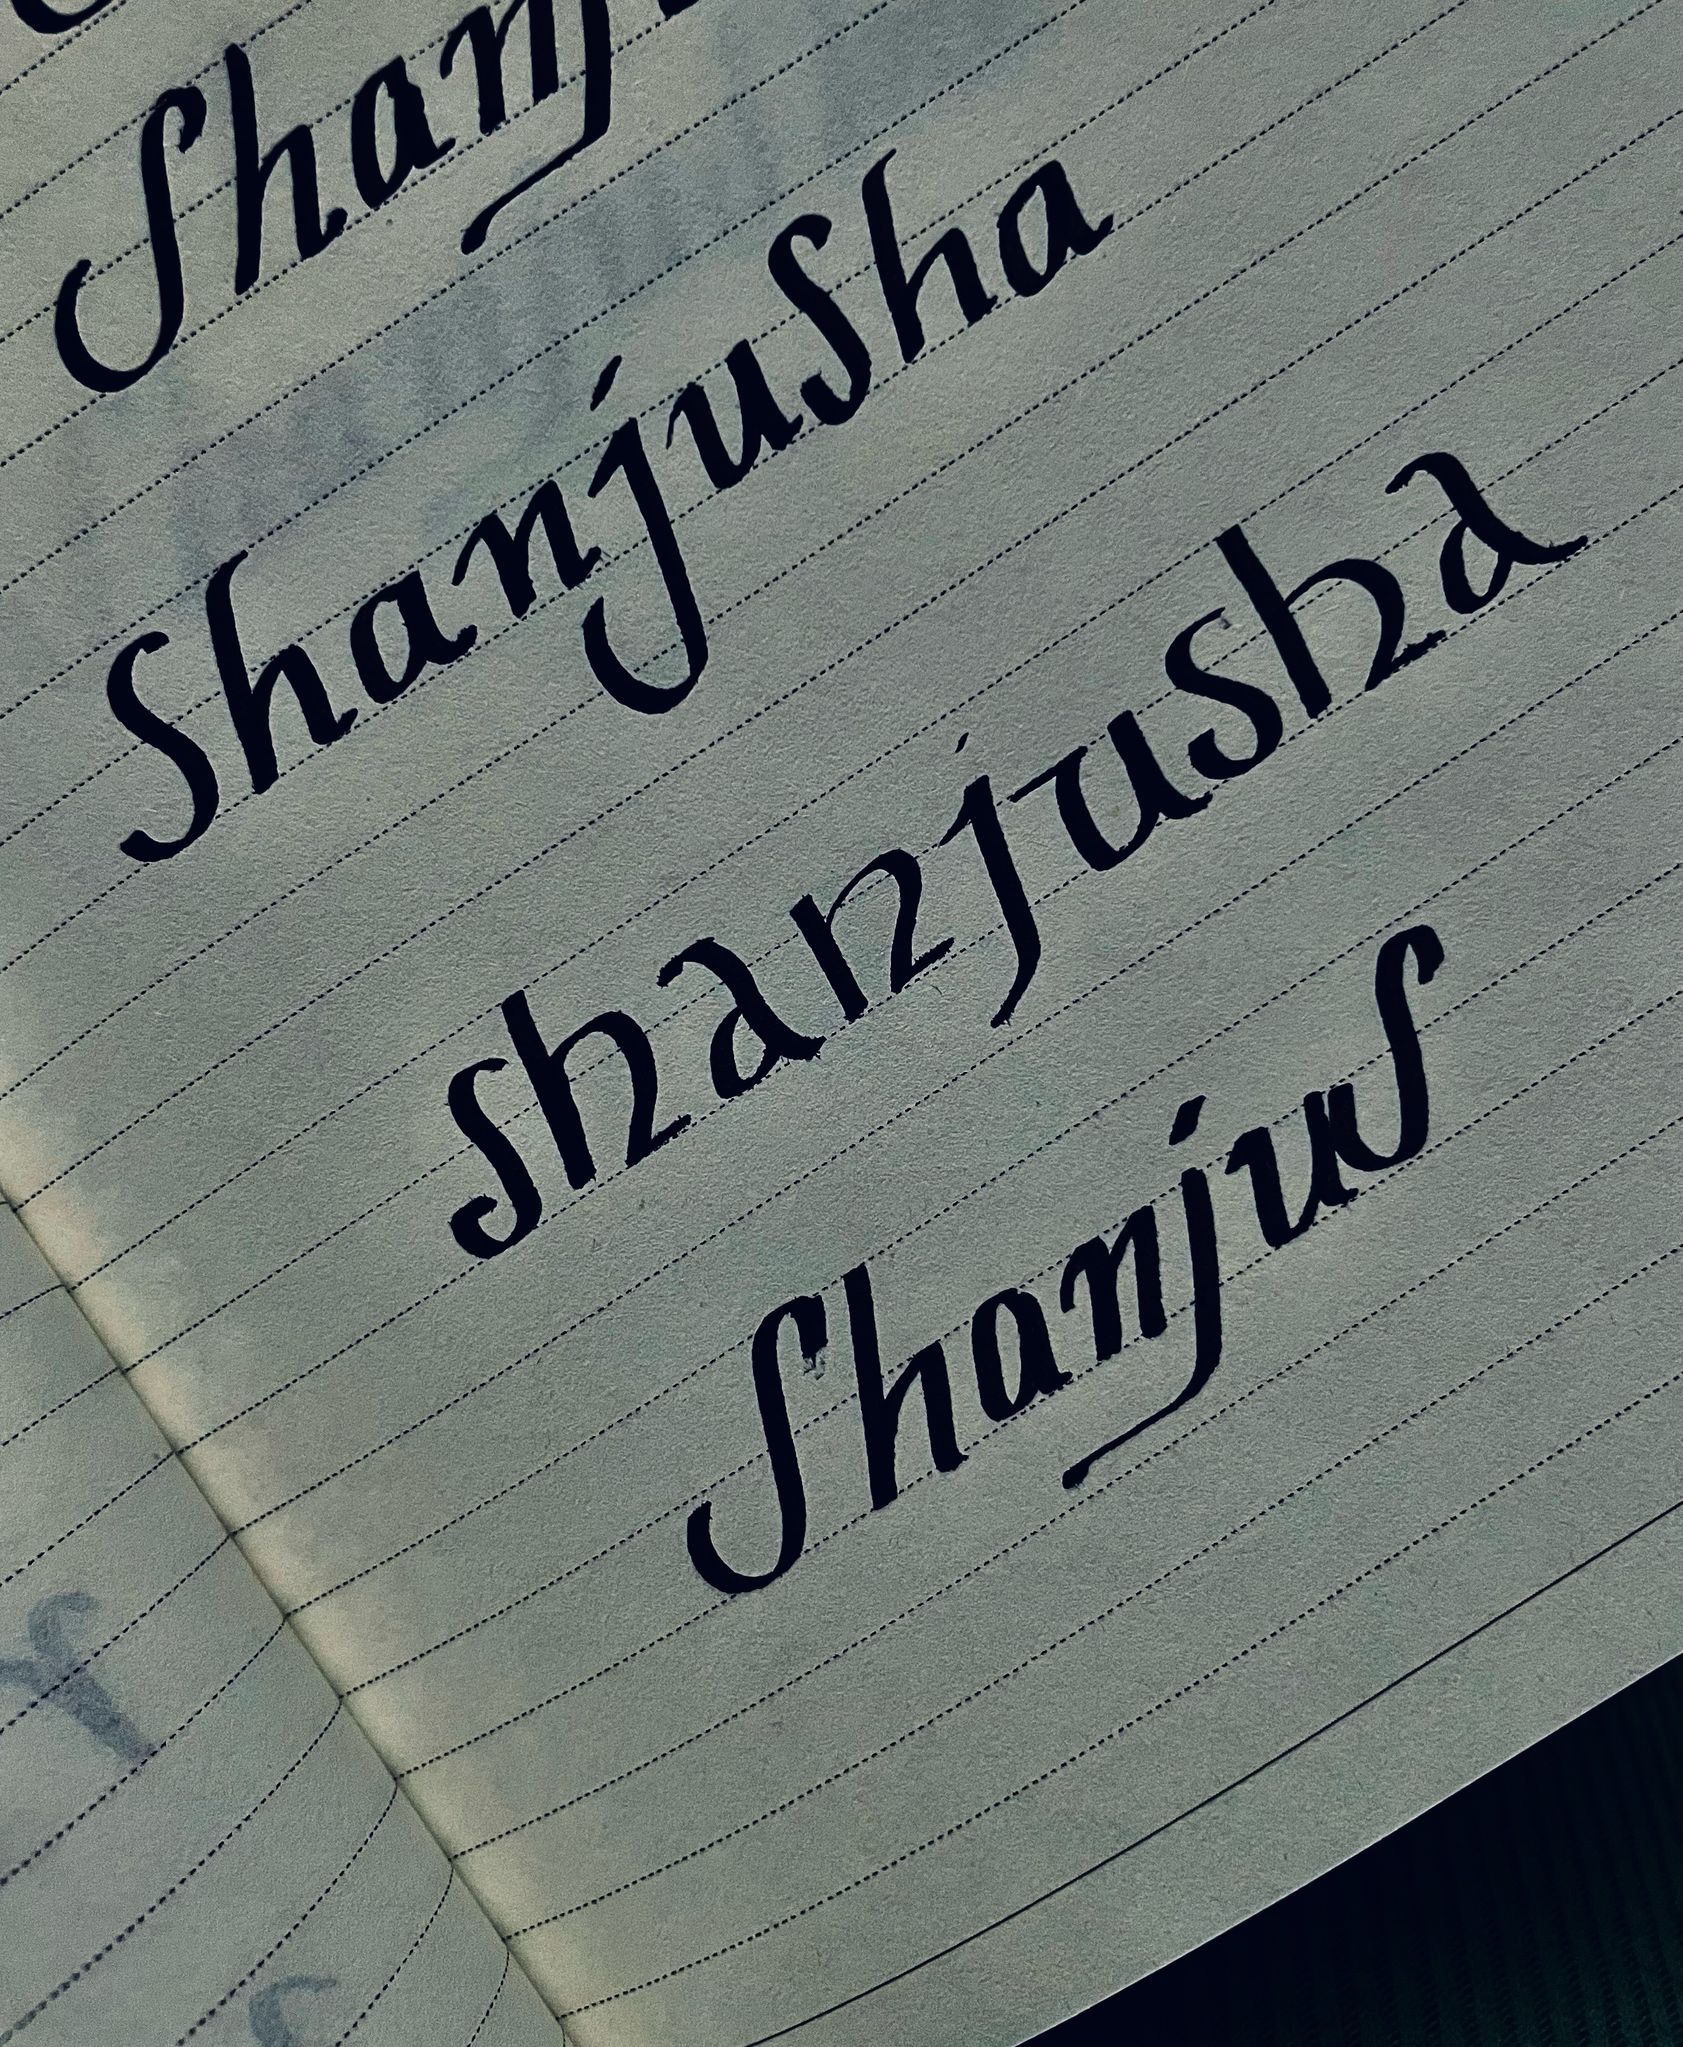 Shanj
Shanjusha
shanjusha
Shanjus